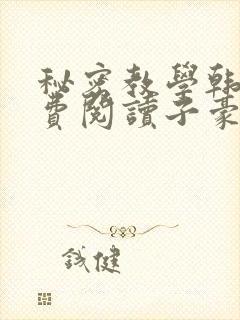 秘密教學韩
費閱讀子豪
誠健